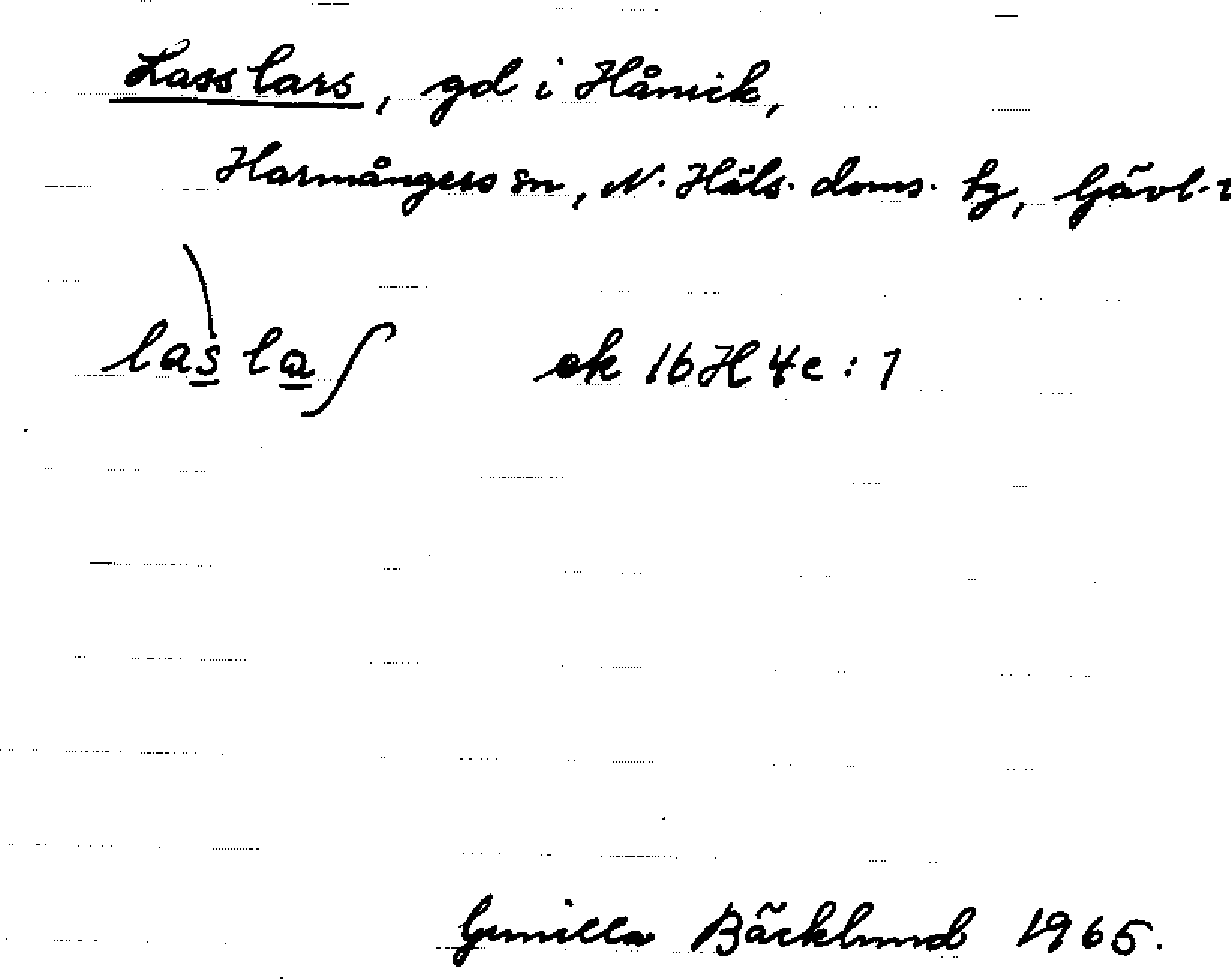 Lasslars, gd i Håmik,
Harmångers sn, N. Häls. doms. tg, Gävl.
lasla∫ ek 16H4e:1
Gunilla Bäcklund 1965.